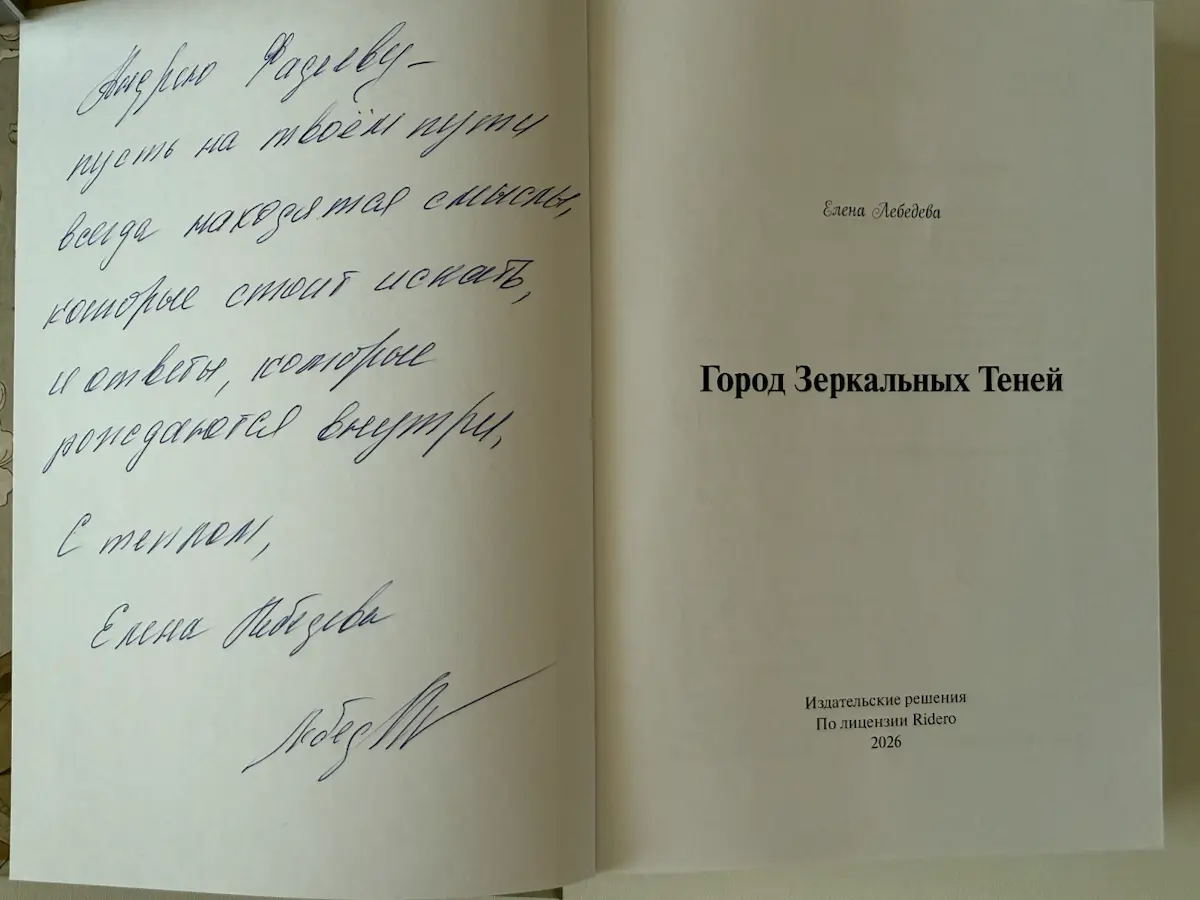 Андрею Фадееву –
пусть на твоём пути
всегда находятся смыслы,
которые стоит искать,
и ответы, которые
рождаются внутри.
С теплом,
Елена Лебедева
Лебед
Елена Лебедева
Город Зеркальных Теней
Издательские решения
По лицензии Ridero
2026